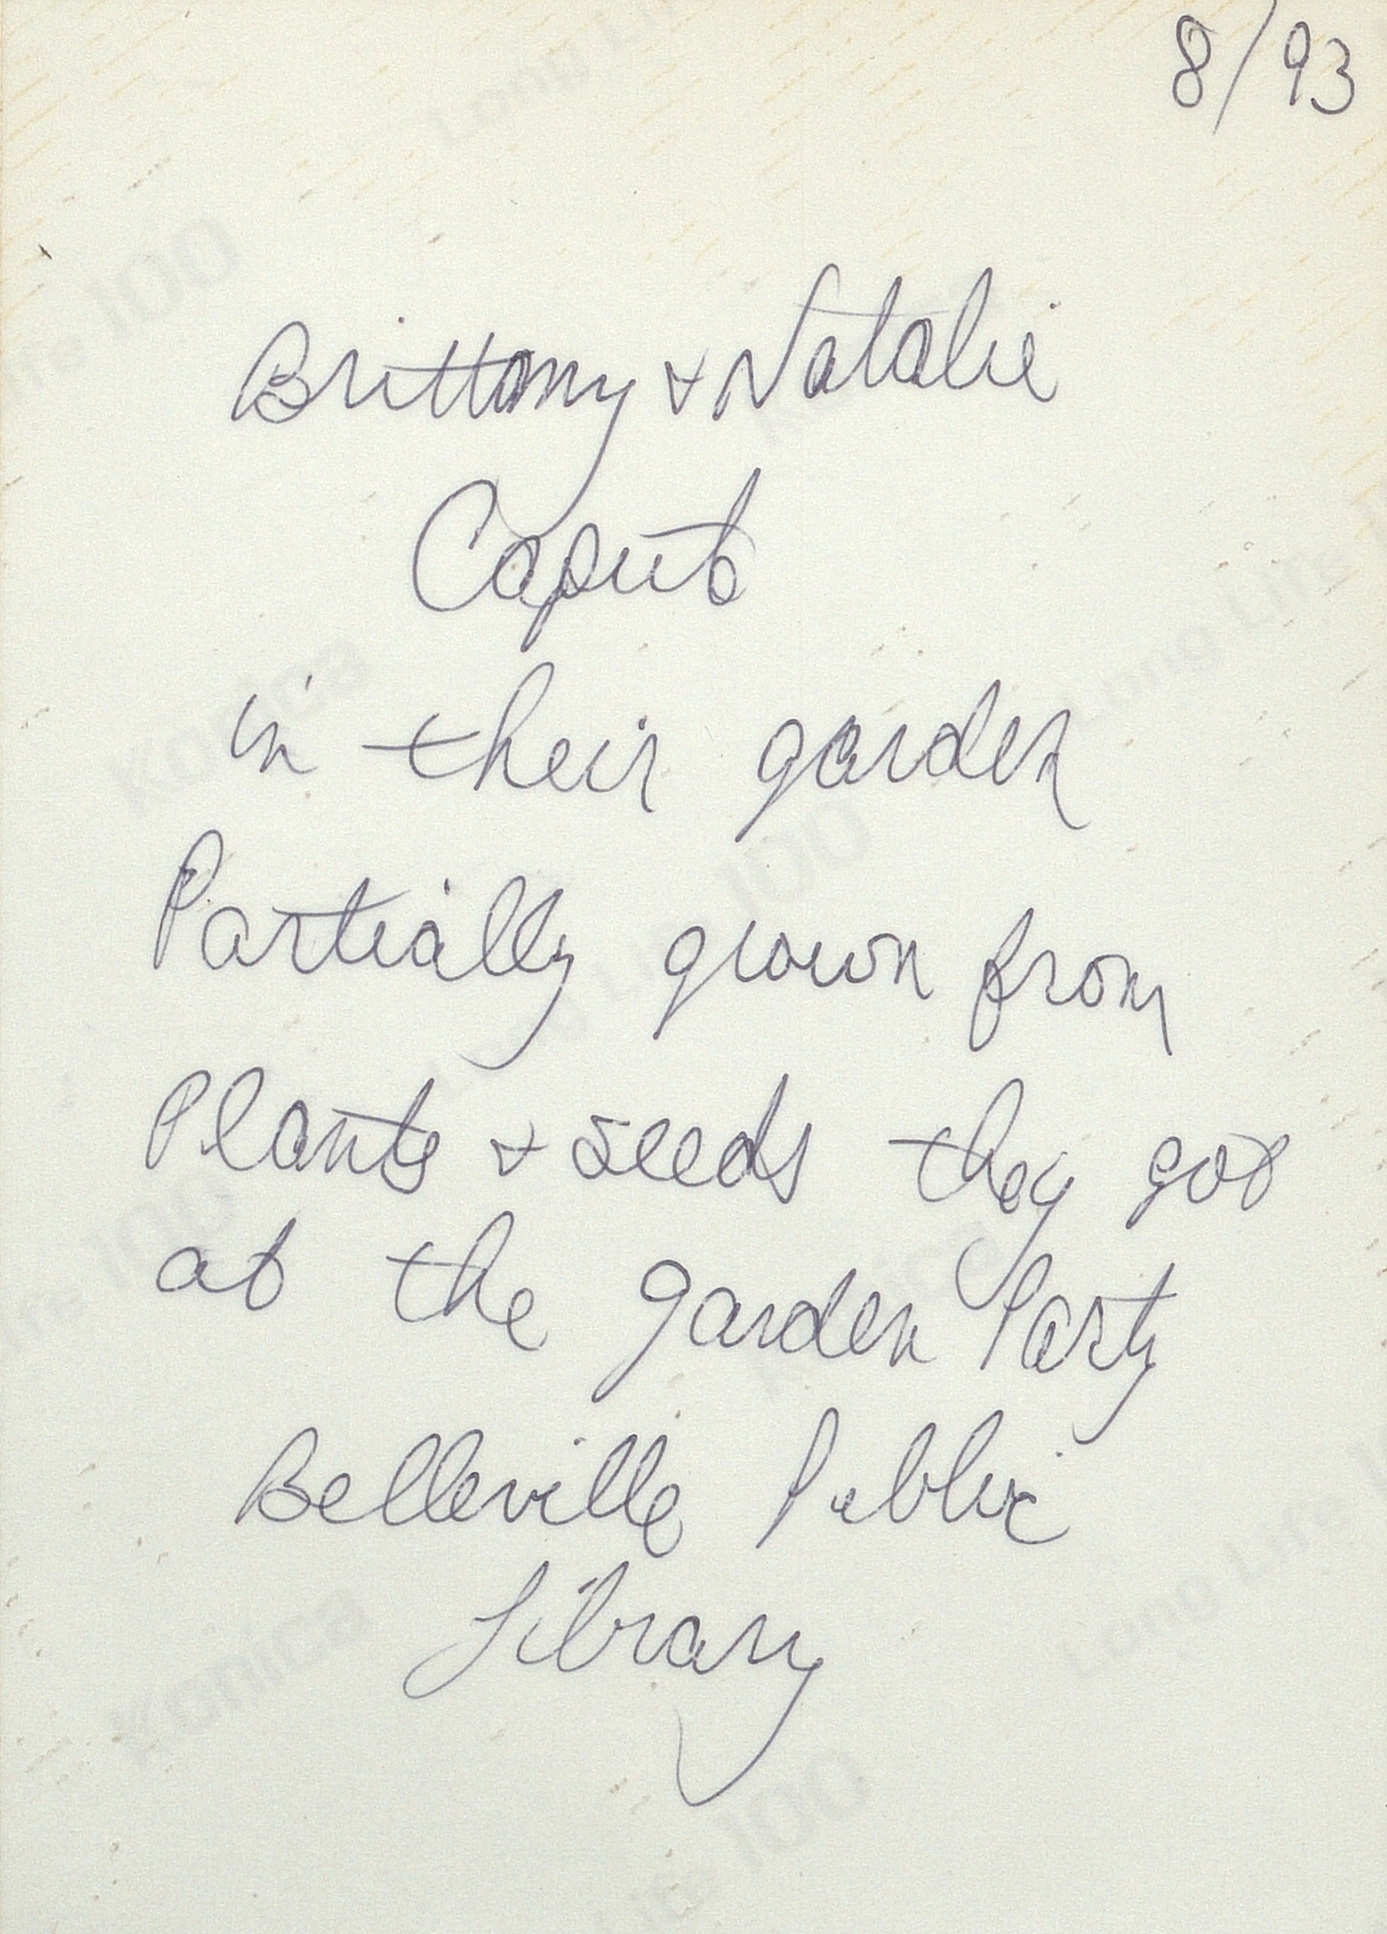 8/93
Brittany + Natalie
Caputo
in their garden
Partially grown from
Plants + seeds they got
at the garden Party
Belleville Public
Library
Konica
Long Life 100